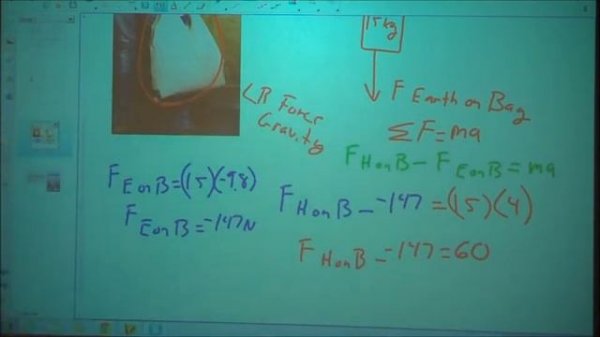 15kg
F Earth on Bag
LR Force
Gravity
ΣF=ma
F H on B - F E on B = ma
F E on B = (15)(-9.8)
F E on B = -147N
F H on B - -147 = (15)(4)
F H on B - -147 = 60